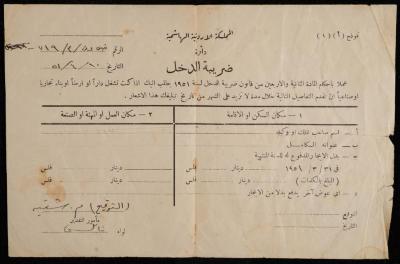 نموذج (٢) (١)
المملكة الاردنية الهاشمية
دائرة
ضريبة الدخل
الرقم ٧١٩/٢/
التاريخ ٥١/٦/٢٠
عملا باحكام المادة الثانية والاربعين من قانون ضريبة الدخل لسنة ١٩٥١ يطلب اليك اذا كنت تشغل داراً او ارضاً او بناء تجارياً
او صناعياً ان تقدم التفاصيل التالية خلال مدة لا تزيد على الشهر من تاريخ تبليغك هذا الاشعار .
١ - مكان السكن او الاقامة
٢ - مكان العمل او المهنة او الصنعة
أ - اسم صاحب الملك او وكيله
ب - عنوانه الكامل
ج - بدل الايجار المدفوع له للسنة المنتهية
في ٣١ / ٣ / ١٩٥١ دينار فلس دينار فلس
( المبلغ بالكلمات ) دينار فلس دينار فلس
د - اي عوض آخر يدفع بدلا من الايجار
التوقيع
التاريخ
( التوقيع )
مأمور التقدير
لواء